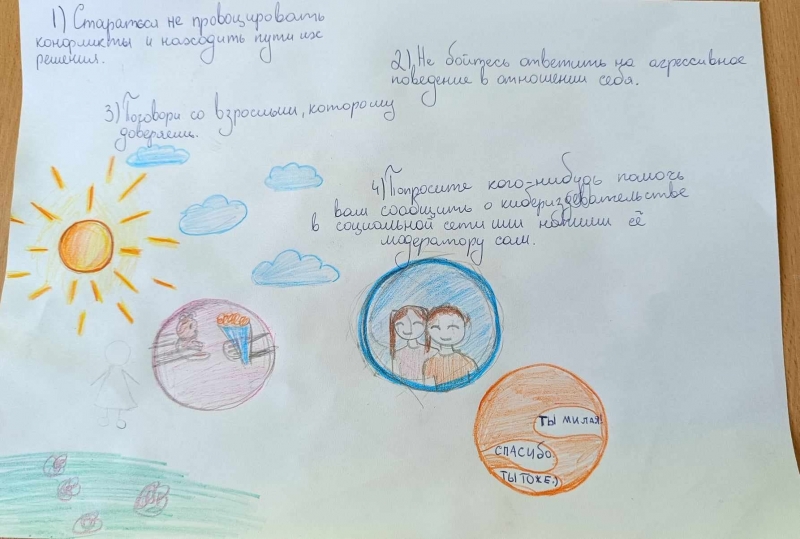 1) Стараться не провоцировать
конфликты и находить пути их
решения.
2) Не бойтесь ответить на агрессивное
поведение в отношении себя.
3) Поговори со взрослыми, которому
доверяешь.
4) Попросите кого-нибудь помочь
вам сообщить о кибериздевательстве
в социальной сети или напиши её
модератору сам.
ТЫ МИЛАЯ!
СПАСИБО
ТЫ ТОЖЕ:)